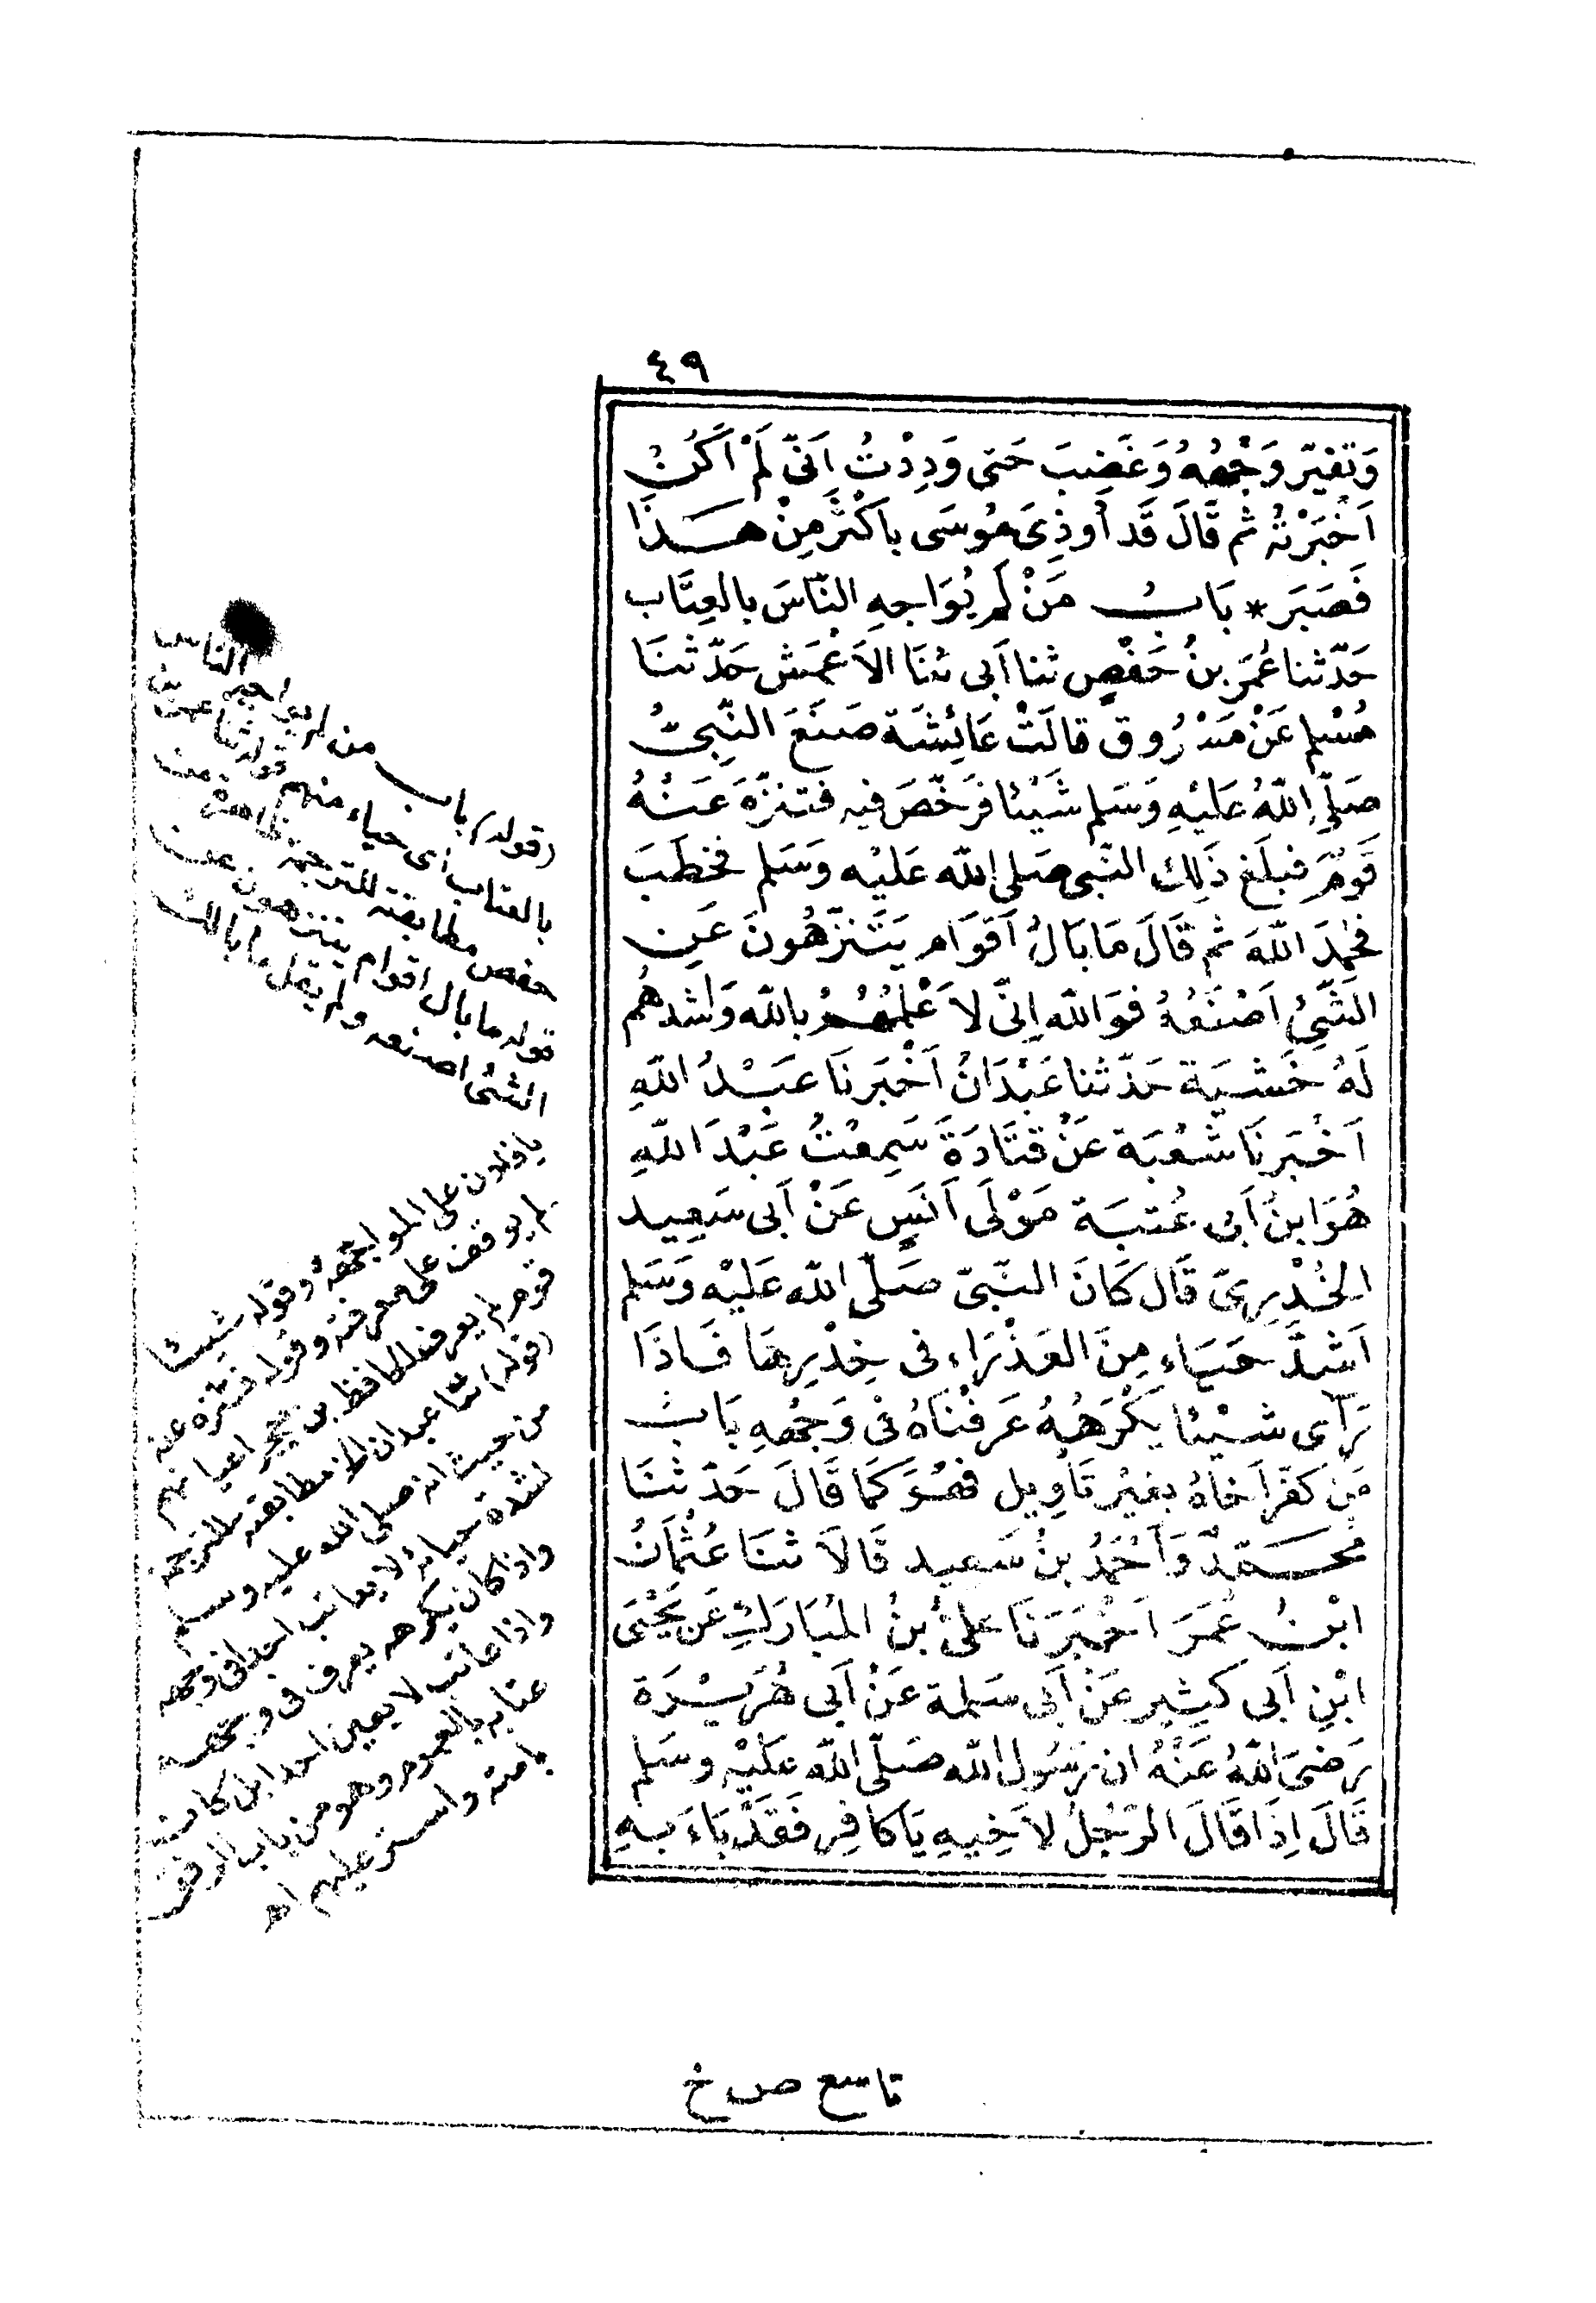 ٤٩
وَتَغيّر وَجْهُهُ وَغَضِبَ حَتى وَدِدْتُ اَنّى لَمْ اَكُنْ
اَخْبَرْتُه ثم قَالَ قَد أُوذِىَ مُوسَى باكْثَرَ مِنْ هَـذَا
فَصَبَرَ * بَابُ مَنْ لَم يُوَاجِهِ النّاسَ بالعِتَاب
حَدّثنا عُمَرُ بنُ حَفْصٍ ثنا اَبى ثنَا الاَعْمَش حَدّثنَا
مُسْلم عَنْ مَسْرُوق قالَتْ عَائِشَة صَنَعَ النّبِىُّ
صَلّى اللّهُ عَليْهِ وَسَلم شَيْئا فَرَخّصَ فيه فتنزّهَ عَنْهُ
قَوْمٌ فبلَغ ذَلِكَ النّبى صَلى اللّه عَليْه وَسَلم فخطَبَ
فحَمِدَ اللّهَ ثم قَالَ مَا بَالُ اَقوَام يَتَنزّهُونَ عَنِ
الشّىْءِ اَصْنَعُهُ فوَاللّه اِنّى لاَعْلَمُهُمْ باللّه وَاشدهُم
لَهُ خَشْيَة حَدّثنا عَبْدَانُ اَخْبَرنَا عَبْدُ اللّهِ
اَخْبَرنَا شُعْبَة عَنْ قتَادَةَ سَمِعْتُ عَبْدَ اللّهِ
هُوَ ابنُ اَبى عُتبَة مَوْلَى اَنَسٍ عَنْ اَبى سَعِيد
الخُدْرِىّ قَال كَانَ النّبىّ صَلّى اللّه عَليْه وَسَلم
اَشَدَّ حَيَاء مِنَ العَذْرَاء فى خِدْرِهَا فَاذَا
رَاَى شَيْئا يَكْرَهُهُ عَرَفْنَاهُ فى وَجْهِهِ بَابُ
مَن كَفّرَ اَخَاهُ بغيْر تَاوِيل فهُوَ كَمَا قَالَ حَدّثنَا
مُحَمّدٌ وَاَحْمَدُ بنُ سَعيد قَالاَ ثنَا عُثْمَانُ
ابْنُ عُمَرَ اَخْبَرَنَا عَلىُّ بنُ المُبَارَكِ عَن يَحْيَى
ابْنِ اَبى كَثِير عَنْ اَبى سَلمة عَنْ اَبى هُرَيْرَة
رَضىَ اللّهُ عَنْهُ ان رَسُول اللّه صَلّى اللّه عَليْه وسَلم
قَالَ اِذَا قَالَ الرّجُلُ لاَخِيهِ يَا كافِر فَقَدْ بَاءَ بهِ
(قوله) باب من لم يواجه الناس
بالعتاب اى حياء منهم قوله ثنا عمر بن
حفص مطابقته للترجمة ظاهرة من
قوله ما بال اقوام يتنزهون عن
الشئ اصنعه ولم يقل ما بالك
يا فلان على المواجهة وقوله شيئا
لم يوقف على معرفته وقوله فتنزه عنه
قوم لم يعرف الحافظ بن حجر اعيانهم
(قوله) ثنا عبدان الخ مطابقته للترجمة
من حيث انه صلى الله عليه وسلم
لشدة حيائه لا يعاتب احدا فى وجهه
واذا كان يكرهه يعرف فى وجهه
واذا عاتب لا يعين احدا بل كان
عتابه بالعموم وهو من باب الرفق
بامته واستر عليهم اهـ
تاسع ص خ